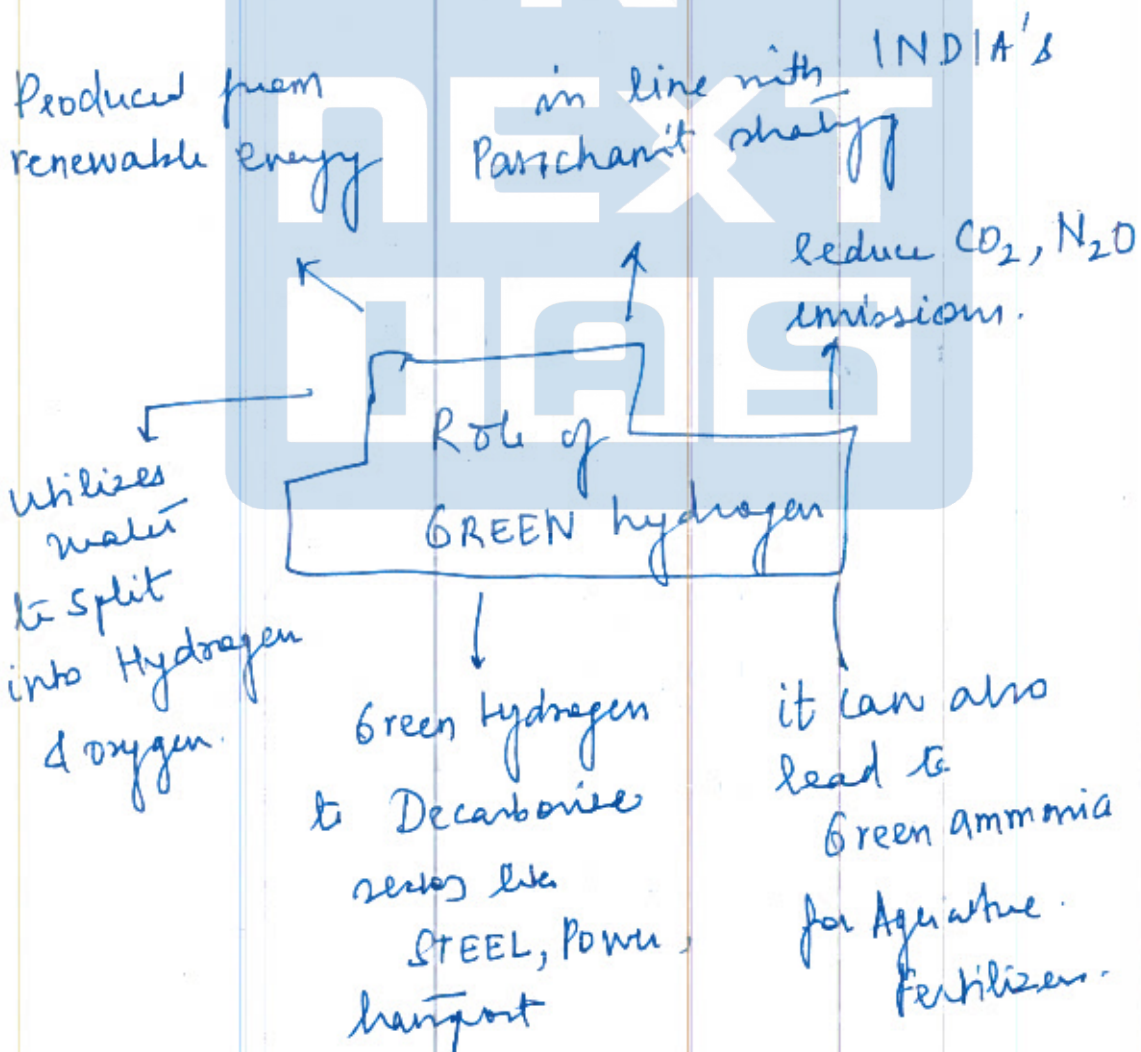 Produced from
renewable energy
in line with INDIA's
Panchamrit strategy
reduce CO2, N2O
emissions.
Role of
GREEN hydrogen
utilizes
water
to split
into Hydrogen
& oxygen.
Green Hydrogen
to Decarbonise
sectors like
STEEL, Power,
transport
it can also
lead to
Green ammonia
for Agriculture.
Fertilizers.
NEXT
IAS